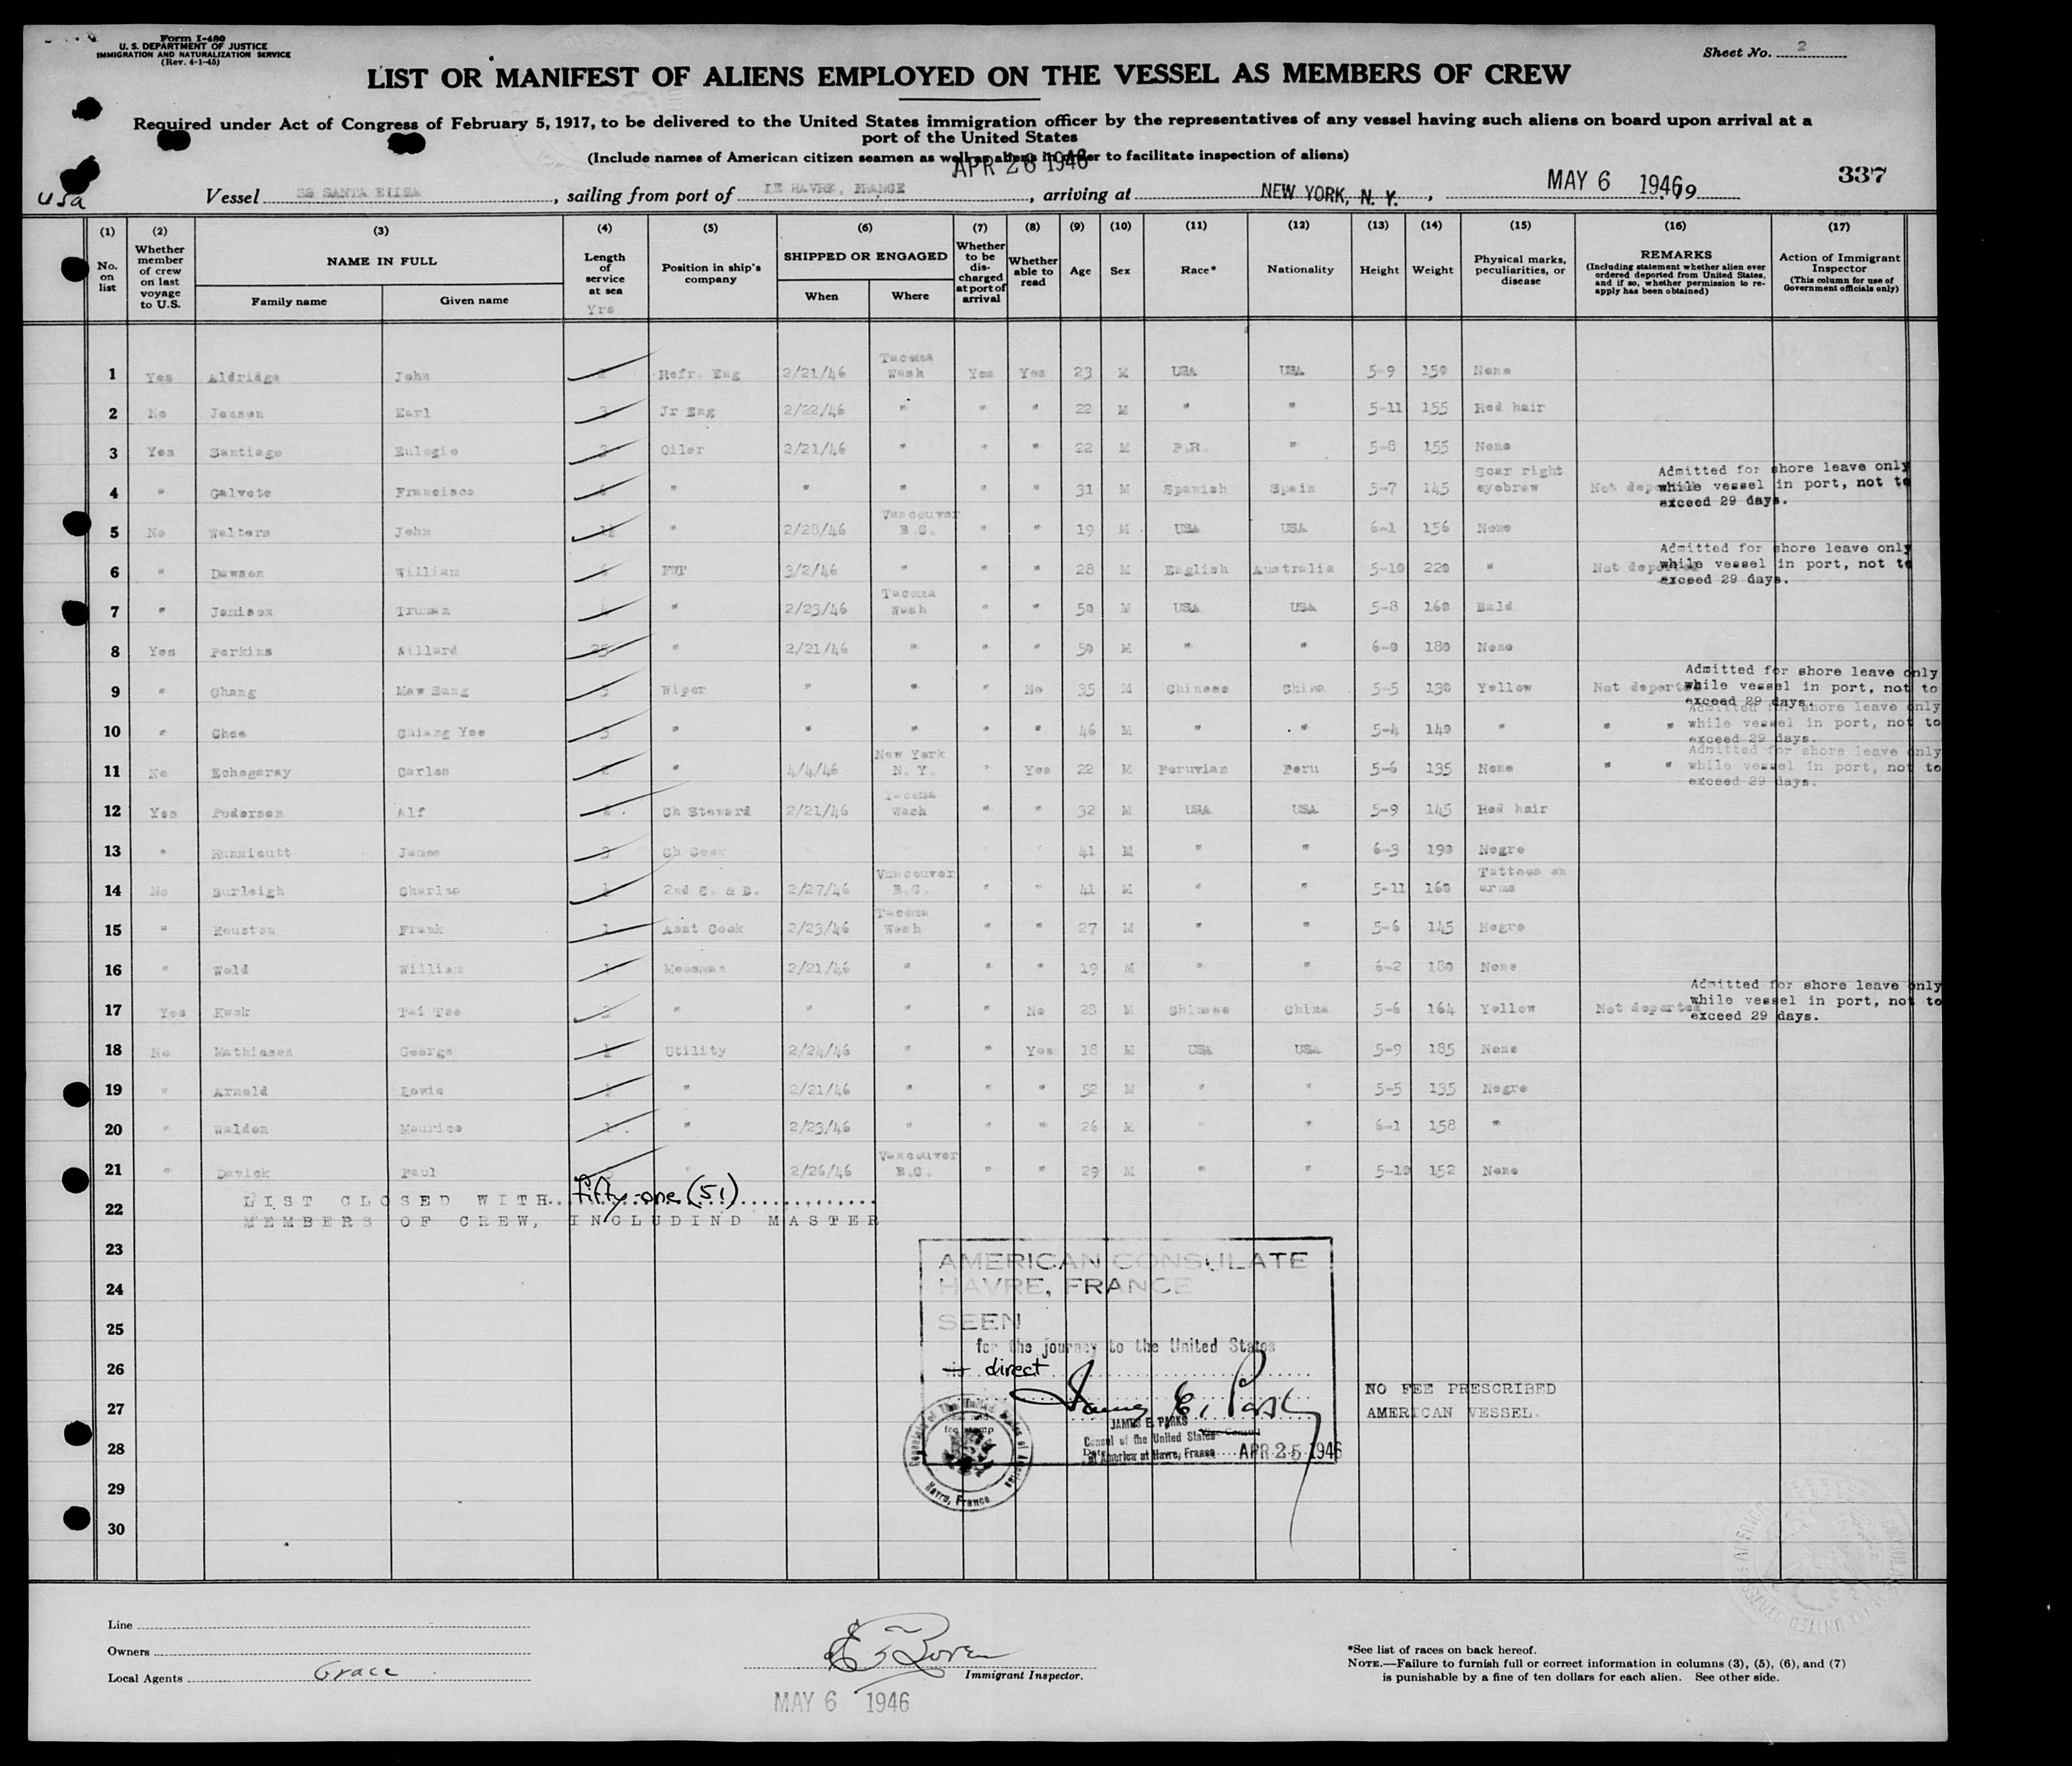 Form I-480
U. S. DEPARTMENT OF JUSTICE
IMMIGRATION AND NATURALIZATION SERVICE
(Rev. 4-1-45)
Sheet No. 2
LIST OR MANIFEST OF ALIENS EMPLOYED ON THE VESSEL AS MEMBERS OF CREW
Required under Act of Congress of February 5, 1917, to be delivered to the United States immigration officer by the representatives of any vessel having such aliens on board upon arrival at a
port of the United States
(Include names of American citizen seamen as well as aliens in order to facilitate inspection of aliens)
APR 26 1946
337
USA
Vessel SS SANTA ELISA, sailing from port of LE HAVRE, FRANCE, arriving at NEW YORK, N. Y., MAY 6 1946, 19
(1) No. on list
(2) Whether member of crew on last voyage to U.S.
(3) NAME IN FULL Family name Given name
(4) Length of service at sea Yrs
(5) Position in ship's company
(6) SHIPPED OR ENGAGED When Where
(7) Whether to be discharged at port of arrival
(8) Whether able to read
(9) Age
(10) Sex
(11) Race*
(12) Nationality
(13) Height
(14) Weight
(15) Physical marks, peculiarities, or disease
(16) REMARKS (Including statement whether alien ever ordered deported from United States, and if so, whether permission to re-apply has been obtained)
(17) Action of Immigrant Inspector (This column for use of Government officials only)
1 Yes Aldridge John Refr. Eng 2/21/46 Tacoma Wash Yes Yes 23 M USA USA 5-9 150 None
2 No Jensen Earl Jr Eng 2/22/46 " " " 22 M " " 5-11 155 Red hair
3 Yes Santiago Eulogio Oiler 2/21/46 " " " 22 M P.R. " 5-8 155 None
4 " Galvete Francisco " " " " " 31 M Spanish Spain 5-7 145 Scar right eyebrow Not deported Admitted for shore leave only while vessel in port, not to exceed 29 days.
5 No Walters John " 2/28/46 Vancouver B.C. " " 19 M USA USA 6-1 156 None
6 " Dawson William FWT 3/2/46 " " " 28 M English Australia 5-10 220 " Not deported Admitted for shore leave only while vessel in port, not to exceed 29 days.
7 " Jemison Truman " 2/23/46 Tacoma Wash " " 50 M USA USA 5-8 160 Bald
8 Yes Perkins Willard 25 " 2/21/46 " " " 50 M " " 6-0 180 None
9 " Chang Maw Sang 5 Wiper " " " No 35 M Chinese China 5-5 130 Yellow Not deported Admitted for shore leave only while vessel in port, not to exceed 29 days.
10 " Chee Chiang Yee 5 " " " " " 46 M " " 5-4 140 " " " Admitted for shore leave only while vessel in port, not to exceed 29 days.
11 No Echegaray Carlos " 4/4/46 New York N. Y. " Yes 22 M Peruvian Peru 5-6 135 None " " Admitted for shore leave only while vessel in port, not to exceed 29 days.
12 Yes Pedersen Alf Ch Steward 2/21/46 Tacoma Wash " " 32 M USA USA 5-9 145 Red hair
13 " Hunnicutt James 3 Ch Cook 41 M " " 6-3 190 Negro
14 No Burleigh Charles 1 2nd C. & B. 2/27/46 Vancouver B.C. " " 41 M " " 5-11 160 Tattoos on arms
15 " Houston Frank 1 Asst Cook 2/23/46 Tacoma Wash " " 27 M " " 5-6 145 Negro
16 " Wold William 1 Messman 2/21/46 " " " 19 M " " 6-2 180 None
17 Yes Kwok Tai Tee 3 " " " " No 28 M Chinese China 5-6 164 Yellow Not deported Admitted for shore leave only while vessel in port, not to exceed 29 days.
18 No Mathiesen George Utility 2/24/46 " " Yes 18 M USA USA 5-9 185 None
19 " Arnold Lewis " 2/21/46 " " " 52 M " " 5-5 135 Negro
20 " Walden Maurice 1 " 2/23/46 " " " 26 M " " 6-1 158 "
21 " Davick Paul " 2/26/46 Vancouver B.C. " " 29 M " " 5-10 152 None
22 LIST CLOSED WITH fifty-one (51)
MEMBERS OF CREW, INCLUDIND MASTER
23
24
25
26
27
28
29
30
AMERICAN CONSULATE
HAVRE, FRANCE
SEEN
for the journey to the United States
direct
James E. Parks
JAMES E. PARKS
Vice Consul
Consul of the United States
of America at Havre, France
Date APR 25 1946
Consulate of The United States of America
Havre, France
fee stamp
NO FEE PRESCRIBED
AMERICAN VESSEL
Line
Owners
Local Agents Grace
Immigrant Inspector.
MAY 6 1946
*See list of races on back hereof.
NOTE.—Failure to furnish full or correct information in columns (3), (5), (6), and (7)
is punishable by a fine of ten dollars for each alien. See other side.